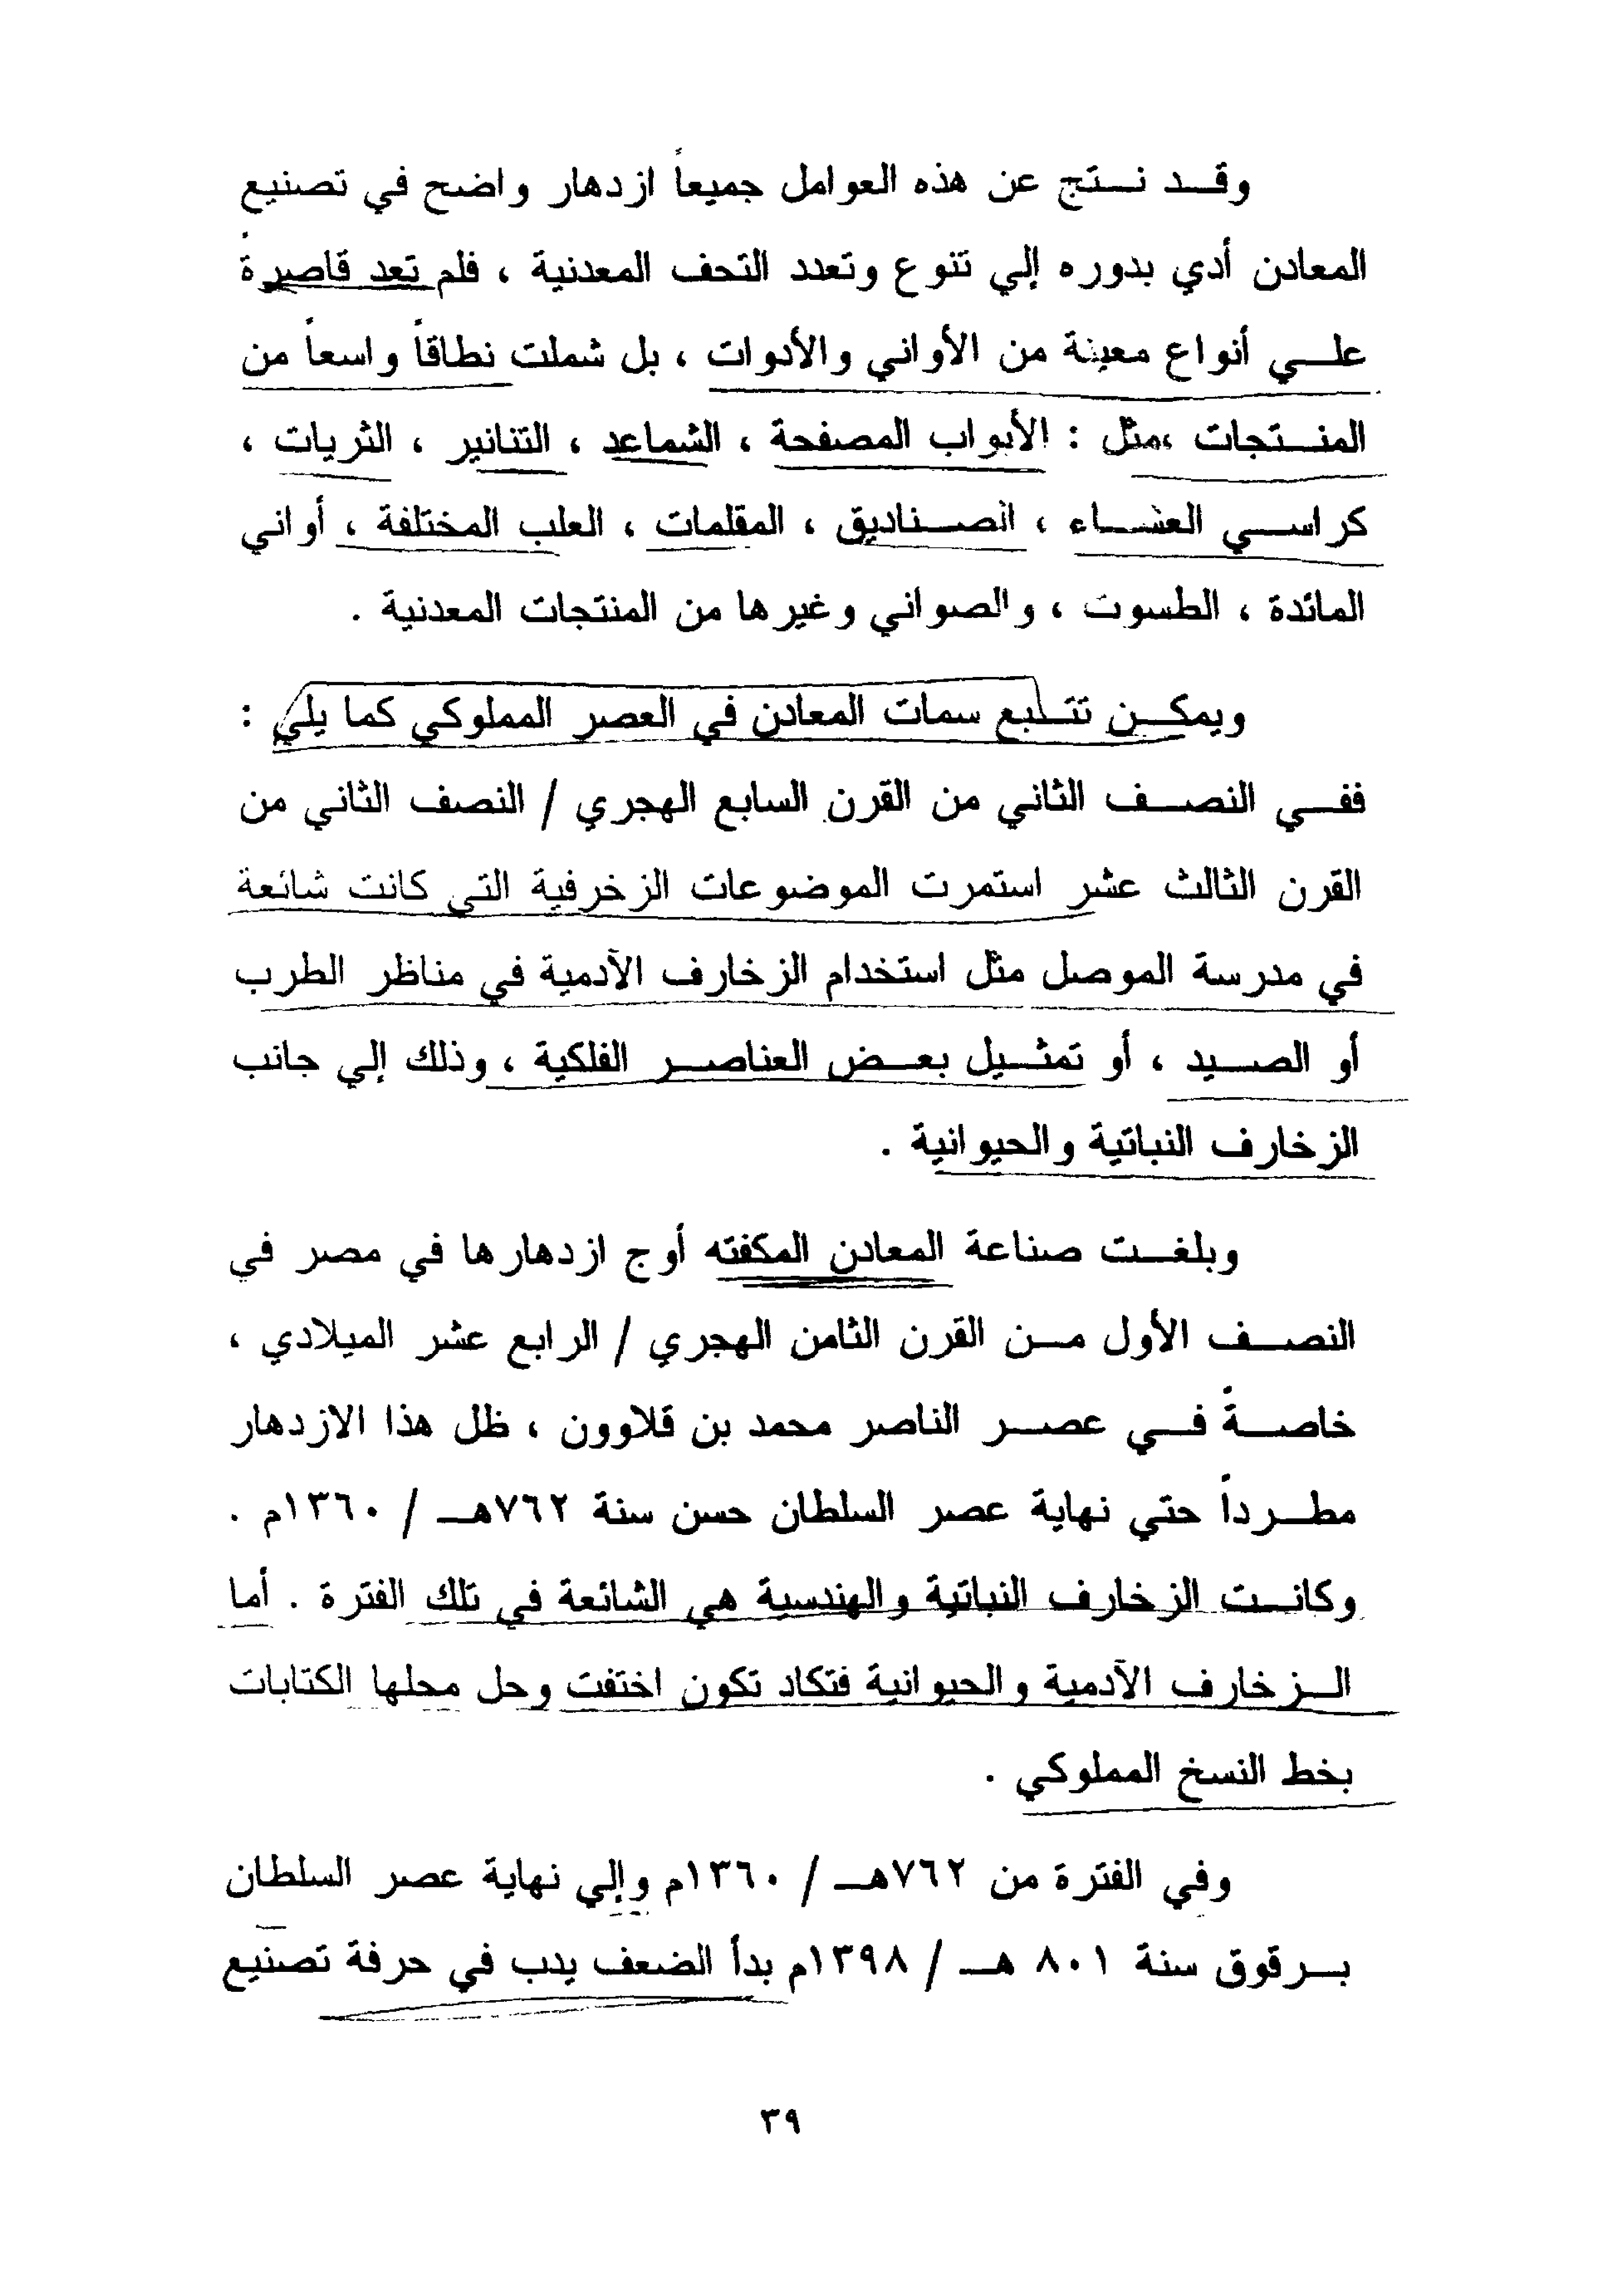 وقد نتج عن هذه العوامل جميعاً ازدهار واضح في تصنيع
المعادن أدي بدوره إلي تنوع وتعدد التحف المعدنية ، فلم تعد قاصرة
علي أنواع معينة من الأواني والأدوات ، بل شملت نطاقاً واسعاً من
المنتجات ،مثل : الأبواب المصفحة ، الشماعد ، التنانير ، الثريات ،
كراسي العشاء ، الصناديق ، المقلمات ، العلب المختلفة ، أواني
المائدة ، الطسوت ، والصواني وغيرها من المنتجات المعدنية .
ويمكن تتبع سمات المعادن في العصر المملوكي كما يلي :
ففي النصف الثاني من القرن السابع الهجري / النصف الثاني من
القرن الثالث عشر استمرت الموضوعات الزخرفية التي كانت شائعة
في مدرسة الموصل مثل استخدام الزخارف الآدمية في مناظر الطرب
أو الصيد ، أو تمثيل بعض العناصر الفلكية ، وذلك إلي جانب
الزخارف النباتية والحيوانية .
وبلغت صناعة المعادن المكفته أوج ازدهارها في مصر في
النصف الأول من القرن الثامن الهجري / الرابع عشر الميلادي ،
خاصةً في عصر الناصر محمد بن قلاوون ، ظل هذا الازدهار
مطرداً حتي نهاية عصر السلطان حسن سنة ٧٦٢هـ / ١٣٦٠م .
وكانت الزخارف النباتية والهندسية هي الشائعة في تلك الفترة . أما
الزخارف الآدمية والحيوانية فتكاد تكون اختفت وحل محلها الكتابات
بخط النسخ المملوكي .
وفي الفترة من ٧٦٢هـ / ١٣٦٠م وإلي نهاية عصر السلطان
برقوق سنة ٨٠١ هـ / ١٣٩٨م بدأ الضعف يدب في حرفة تصنيع
٣٩